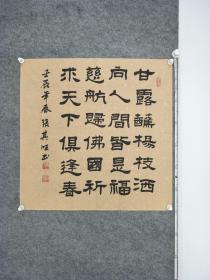 甘露蘸楊枝洒
向人間皆是福
慈航歸佛國祈
求天下俱逢春
壬辰年春張其